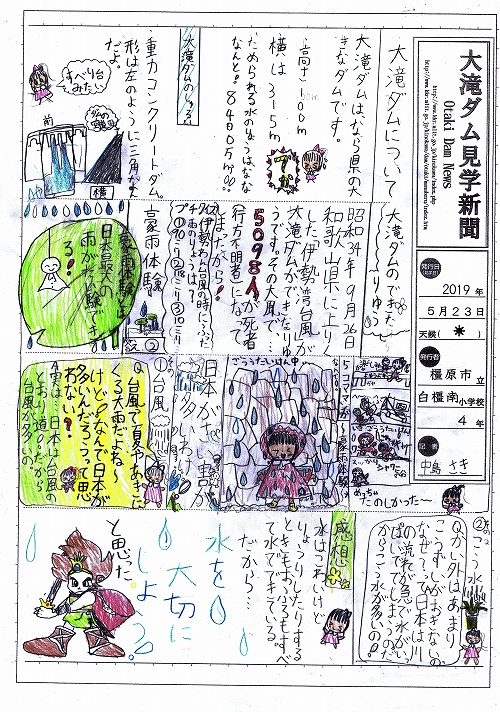 大滝ダム見学新聞
Otaki Dam News
発行日
2019年
5月23日
天候(☀)
発行者
橿原市立
白橿南小学校
4年
中島 さき
大滝ダムについて
大滝ダムはなら県の大
きなダムです。
高さ100m
横は315m
ためられる水のりょうはなな
なんと!8400万m³
大滝ダムのしくみ
重力コンクリートダム
形は左のように三角なん
だよ。
すべり台
みたい
前
横
大滝ダムのできた
りゆう
昭和34年9月26日
和歌山県に上り
した「伊勢湾台風」が
大滝ダムができたりゆ
うです。その大風で…
5098人が死者
(行方不明者)になって
しまたから!
豪雨体験
豪雨体験は
日本最大の
雨が体験でき
る!
5コママンガ
めっちゃ
たのしかった〜
ごううたいけん中
日本がなぜ
水害が
多いわけ
その①
台風
Q台風て夏やあきに
くる大雨だよね〜
けど!なんで日本が
多いんだろうって思
わない?
A実は…日本は台風の
とおり道だから
台風が多いの
その②
こう水
Qかい外はあまり
こうずいがおきないの
なぜ?って日本は川
の流れが急で水がいっ
ぱいでてしまうの
からこう水が多いの!
感想
水はこわいけど
りょうりしたりする
ときもおふろもすべ
て水でできている。
だから…
水を
大切に
しよう
と思った